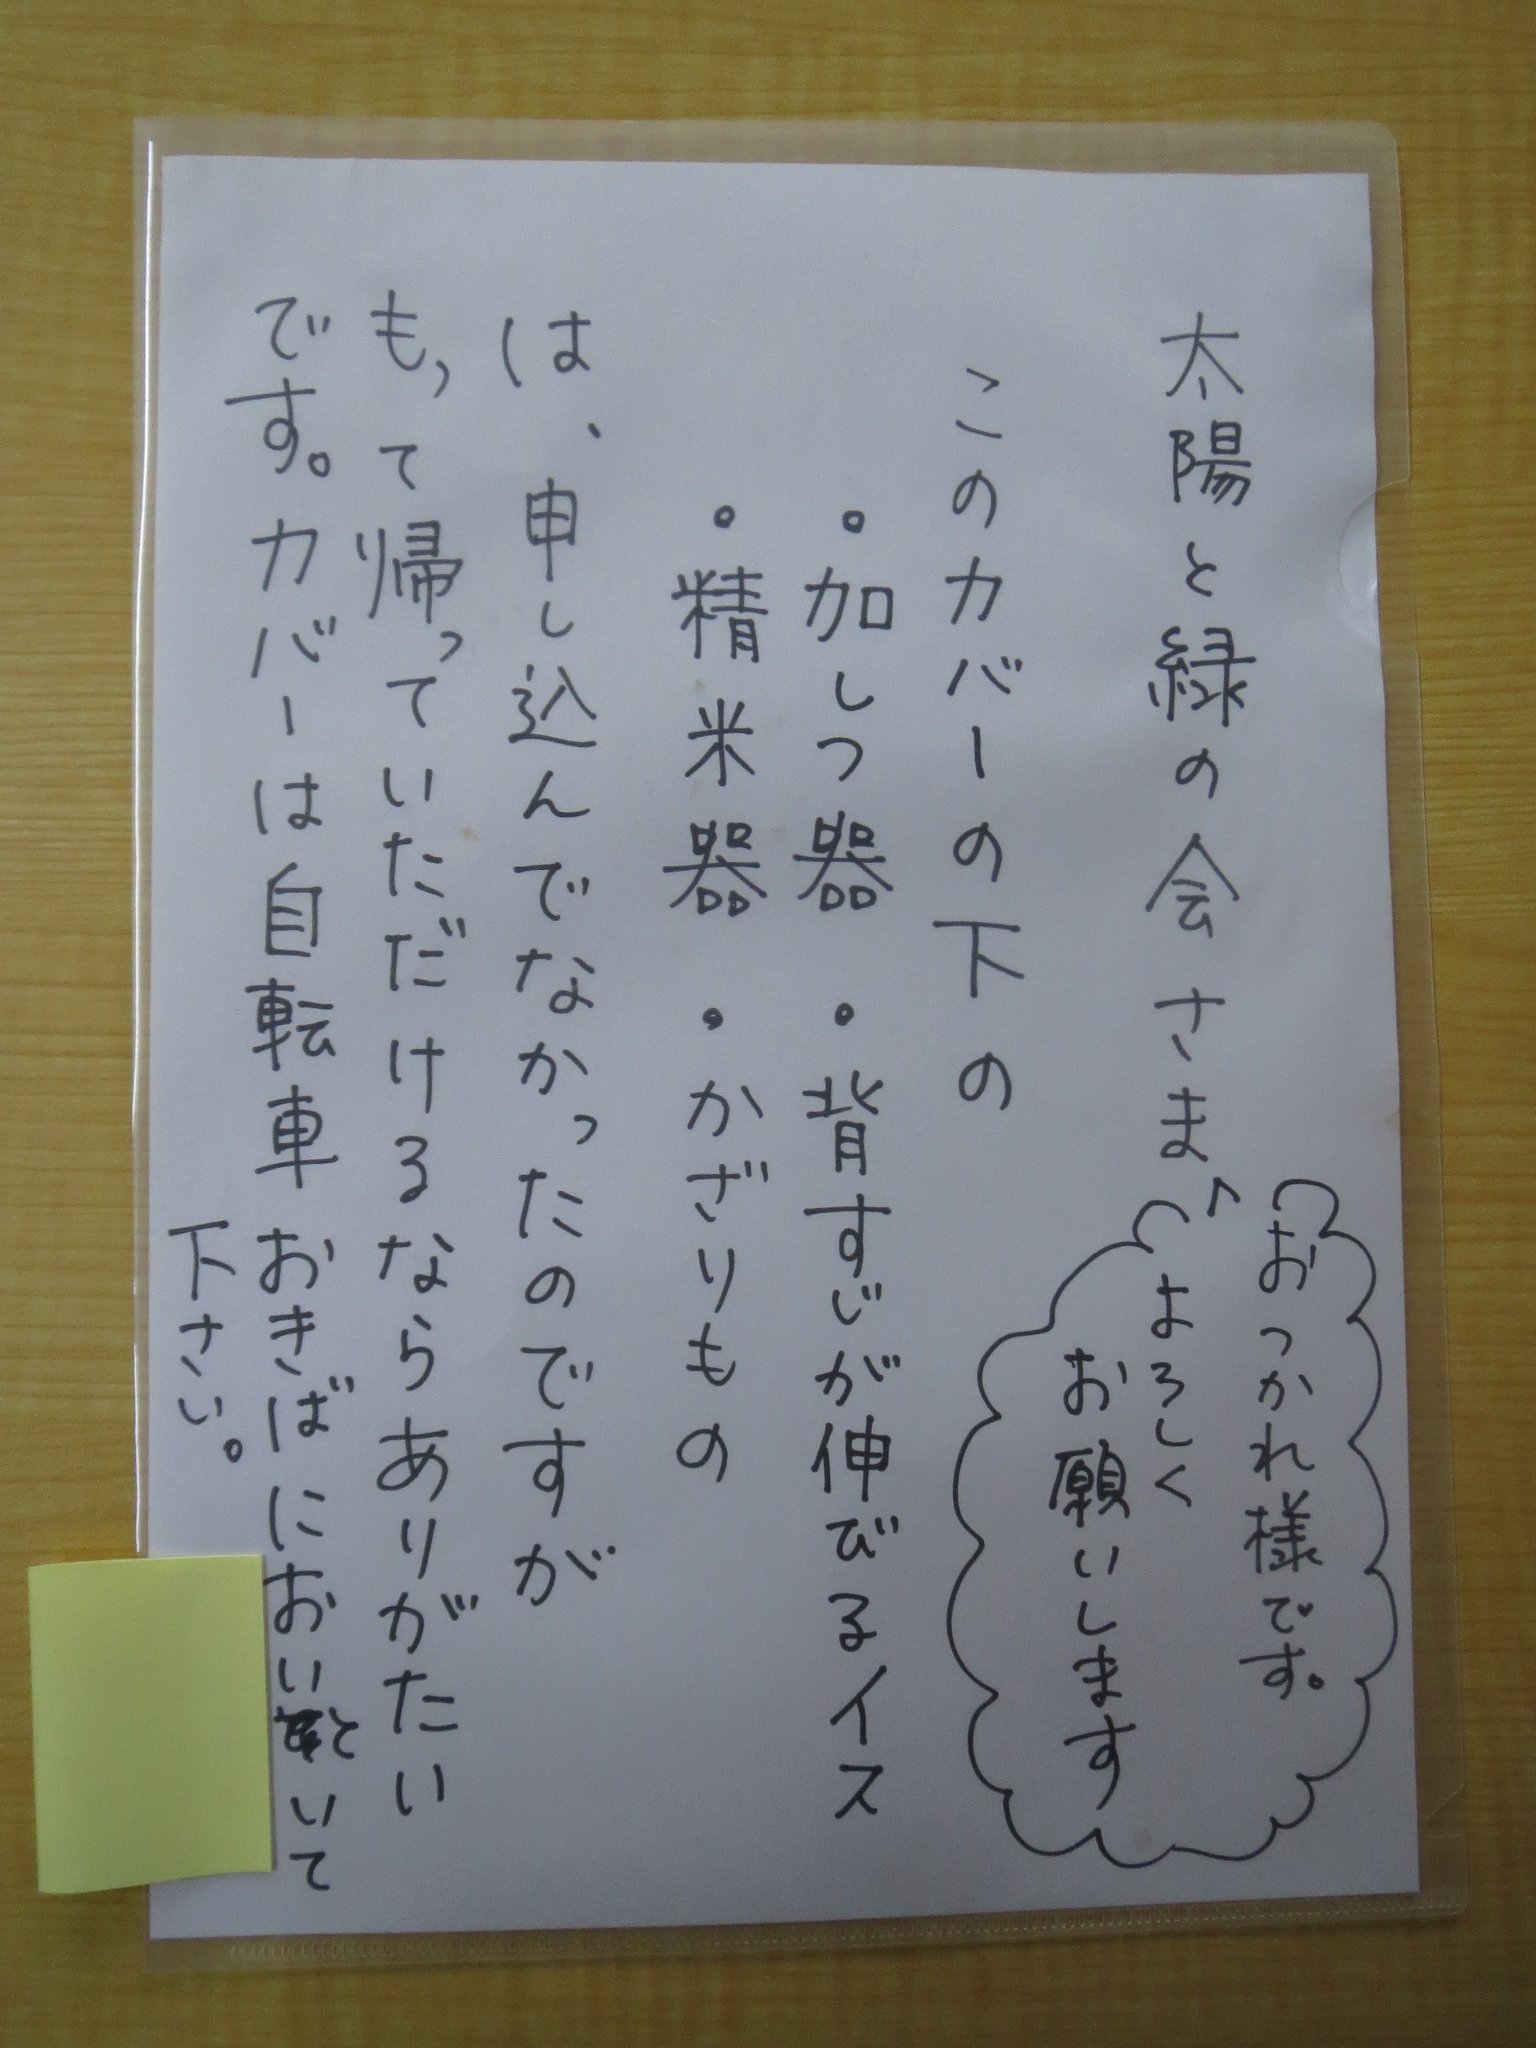 太陽と緑の会さま
おつかれ様です。
よろしく
お願いします
このカバーの下の
・加しつ器 ・背すじが伸びるイス
・精米器 ・かざりもの
は、申し込んでなかったのですが
もって帰っていただけるならありがたい
です。カバーは自転車おきばにおいといて
下さい。